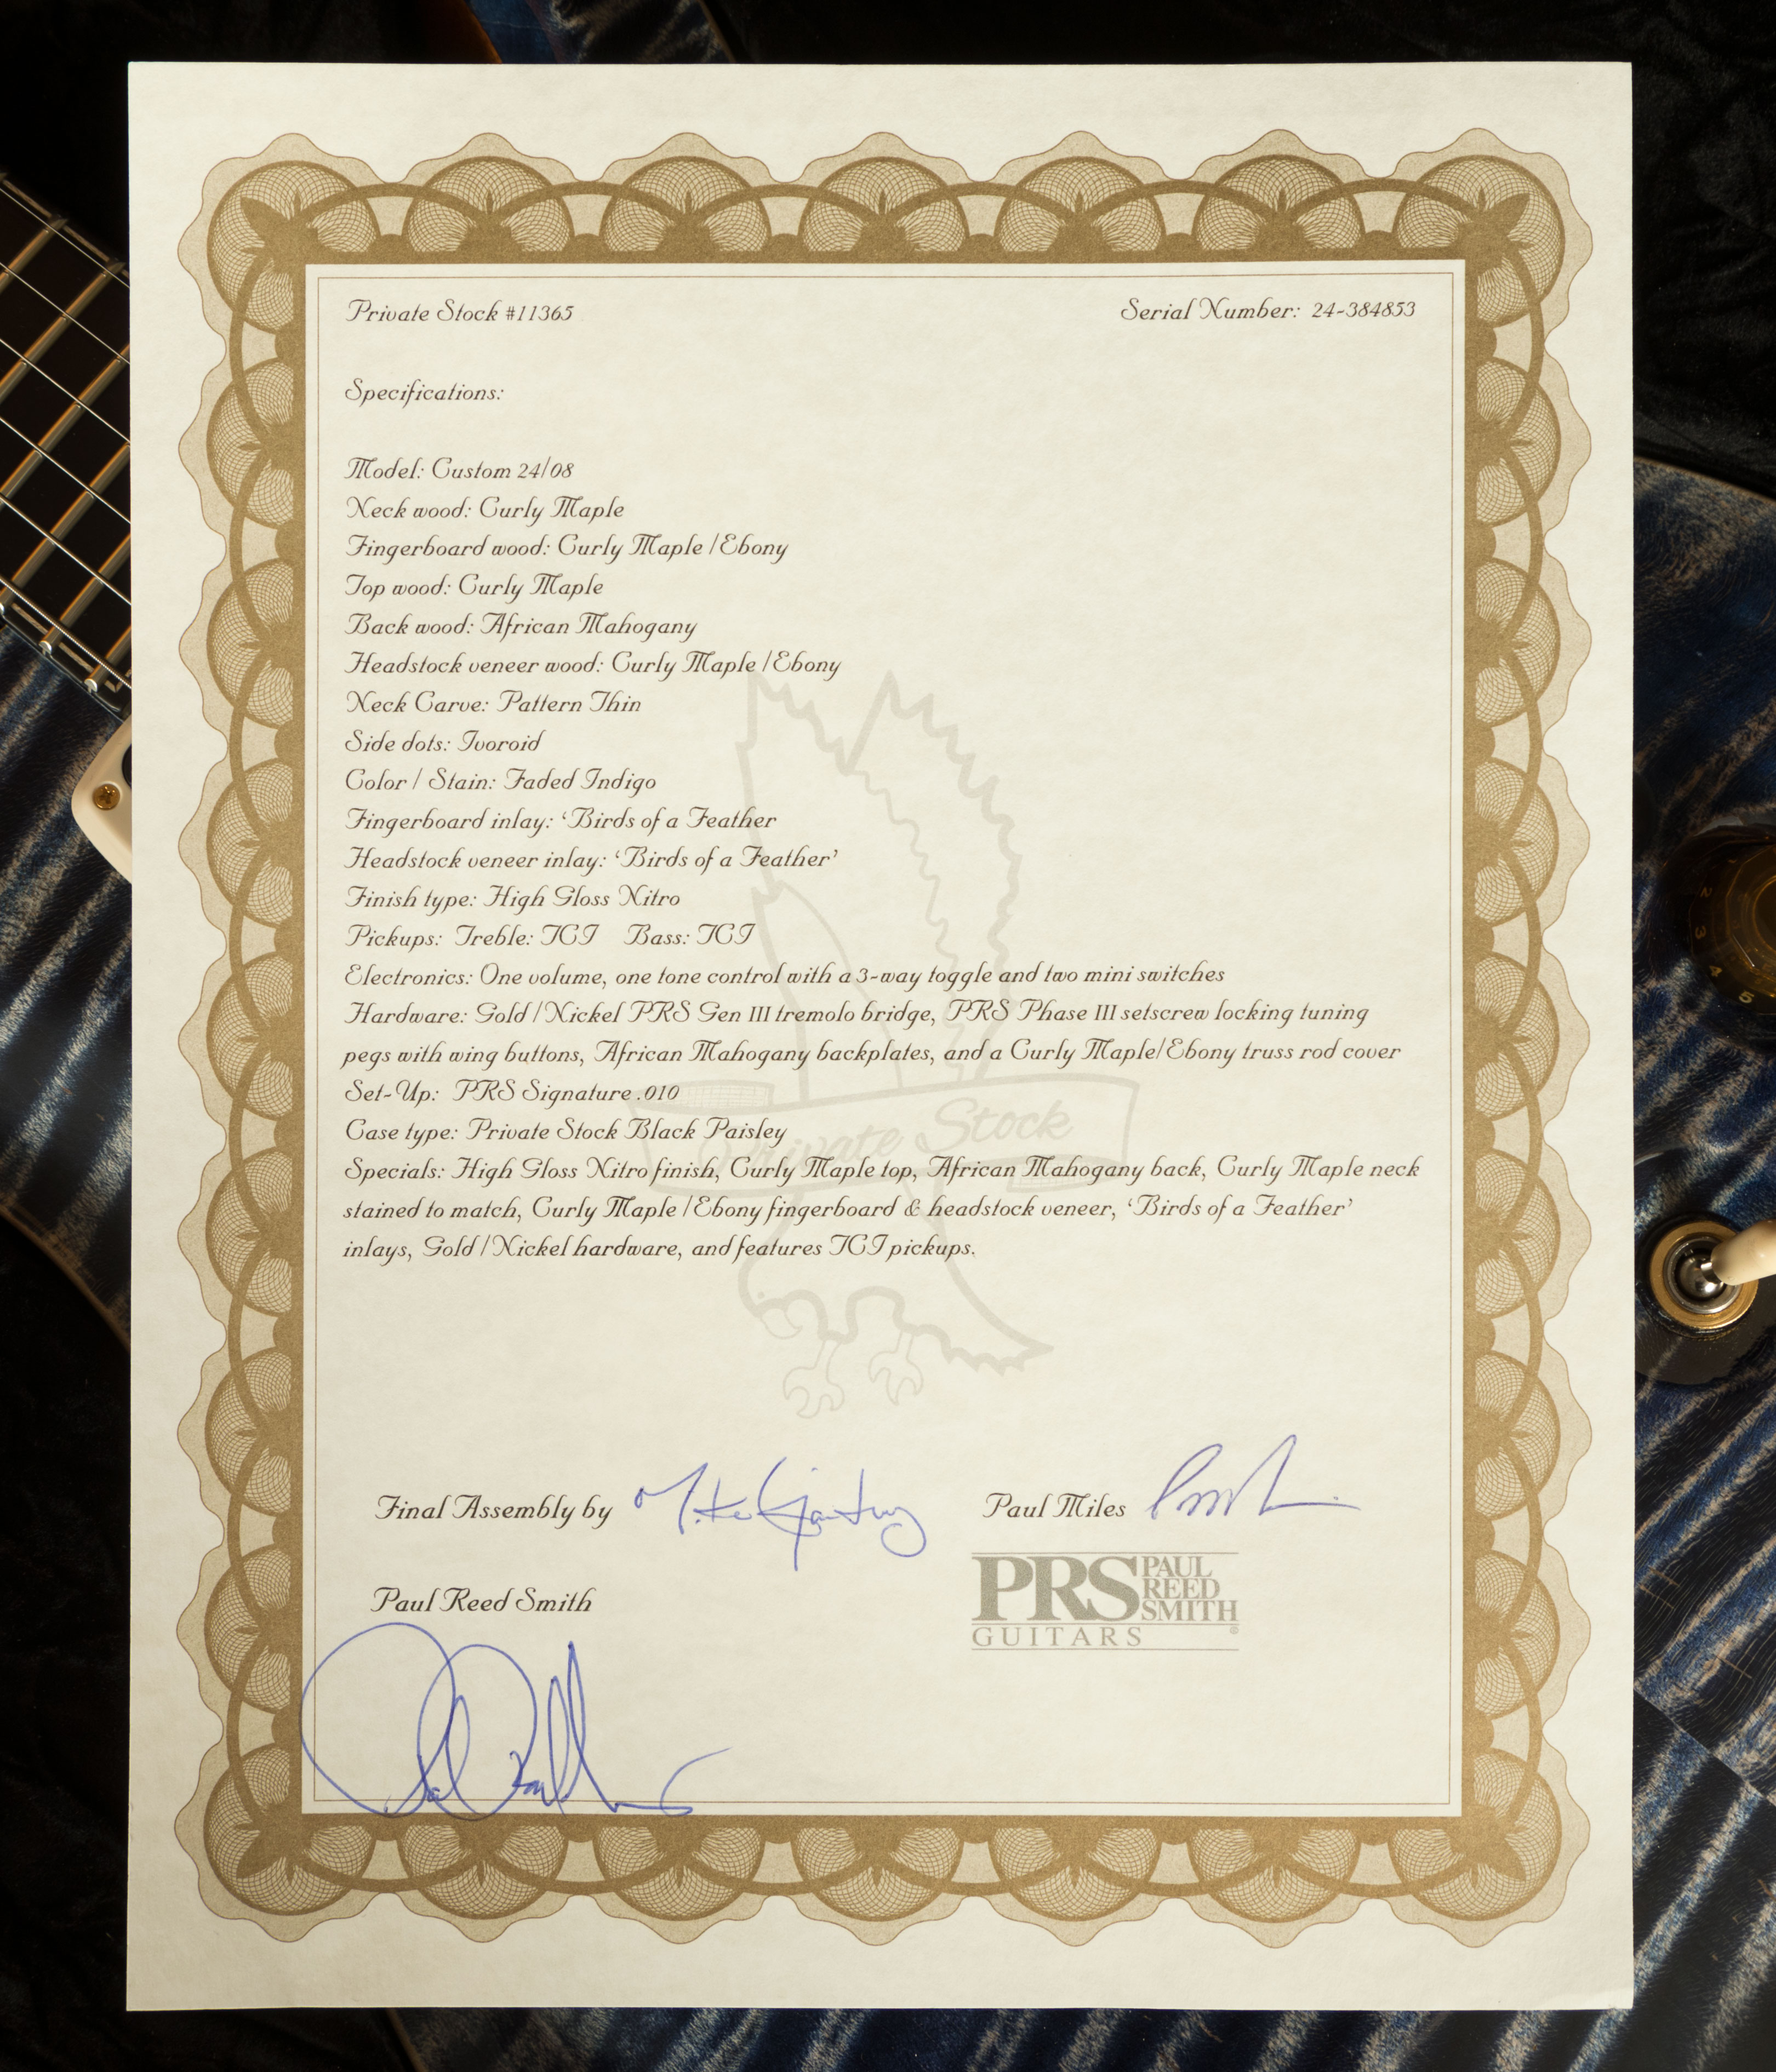 Private Stock #11365
Serial Number: 24-384853
Specifications:
Model: Custom 24/08
Neck wood: Curly Maple
Fingerboard wood: Curly Maple / Ebony
Top wood: Curly Maple
Back wood: African Mahogany
Headstock veneer wood: Curly Maple / Ebony
Neck Carve: Pattern Thin
Side dots: Ivoroid
Color / Stain: Faded Indigo
Fingerboard inlay: ‘Birds of a Feather
Headstock veneer inlay: ‘Birds of a Feather’
Finish type: High Gloss Nitro
Pickups: Treble: TCI Bass: TCI
Electronics: One volume, one tone control with a 3-way toggle and two mini switches
Hardware: Gold / Nickel PRS Gen III tremolo bridge, PRS Phase III setscrew locking tuning
pegs with wing buttons, African Mahogany backplates, and a Curly Maple/Ebony truss rod cover
Set-Up: PRS Signature .010
Case type: Private Stock Black Paisley
Private Stock
Specials: High Gloss Nitro finish, Curly Maple top, African Mahogany back, Curly Maple neck
stained to match, Curly Maple / Ebony fingerboard & headstock veneer, ‘Birds of a Feather’
inlays, Gold / Nickel hardware, and features TCI pickups.
Final Assembly by
Paul Miles
Paul Reed Smith
PRS PAUL
REED
SMITH
GUITARS ®
2
3
4
5